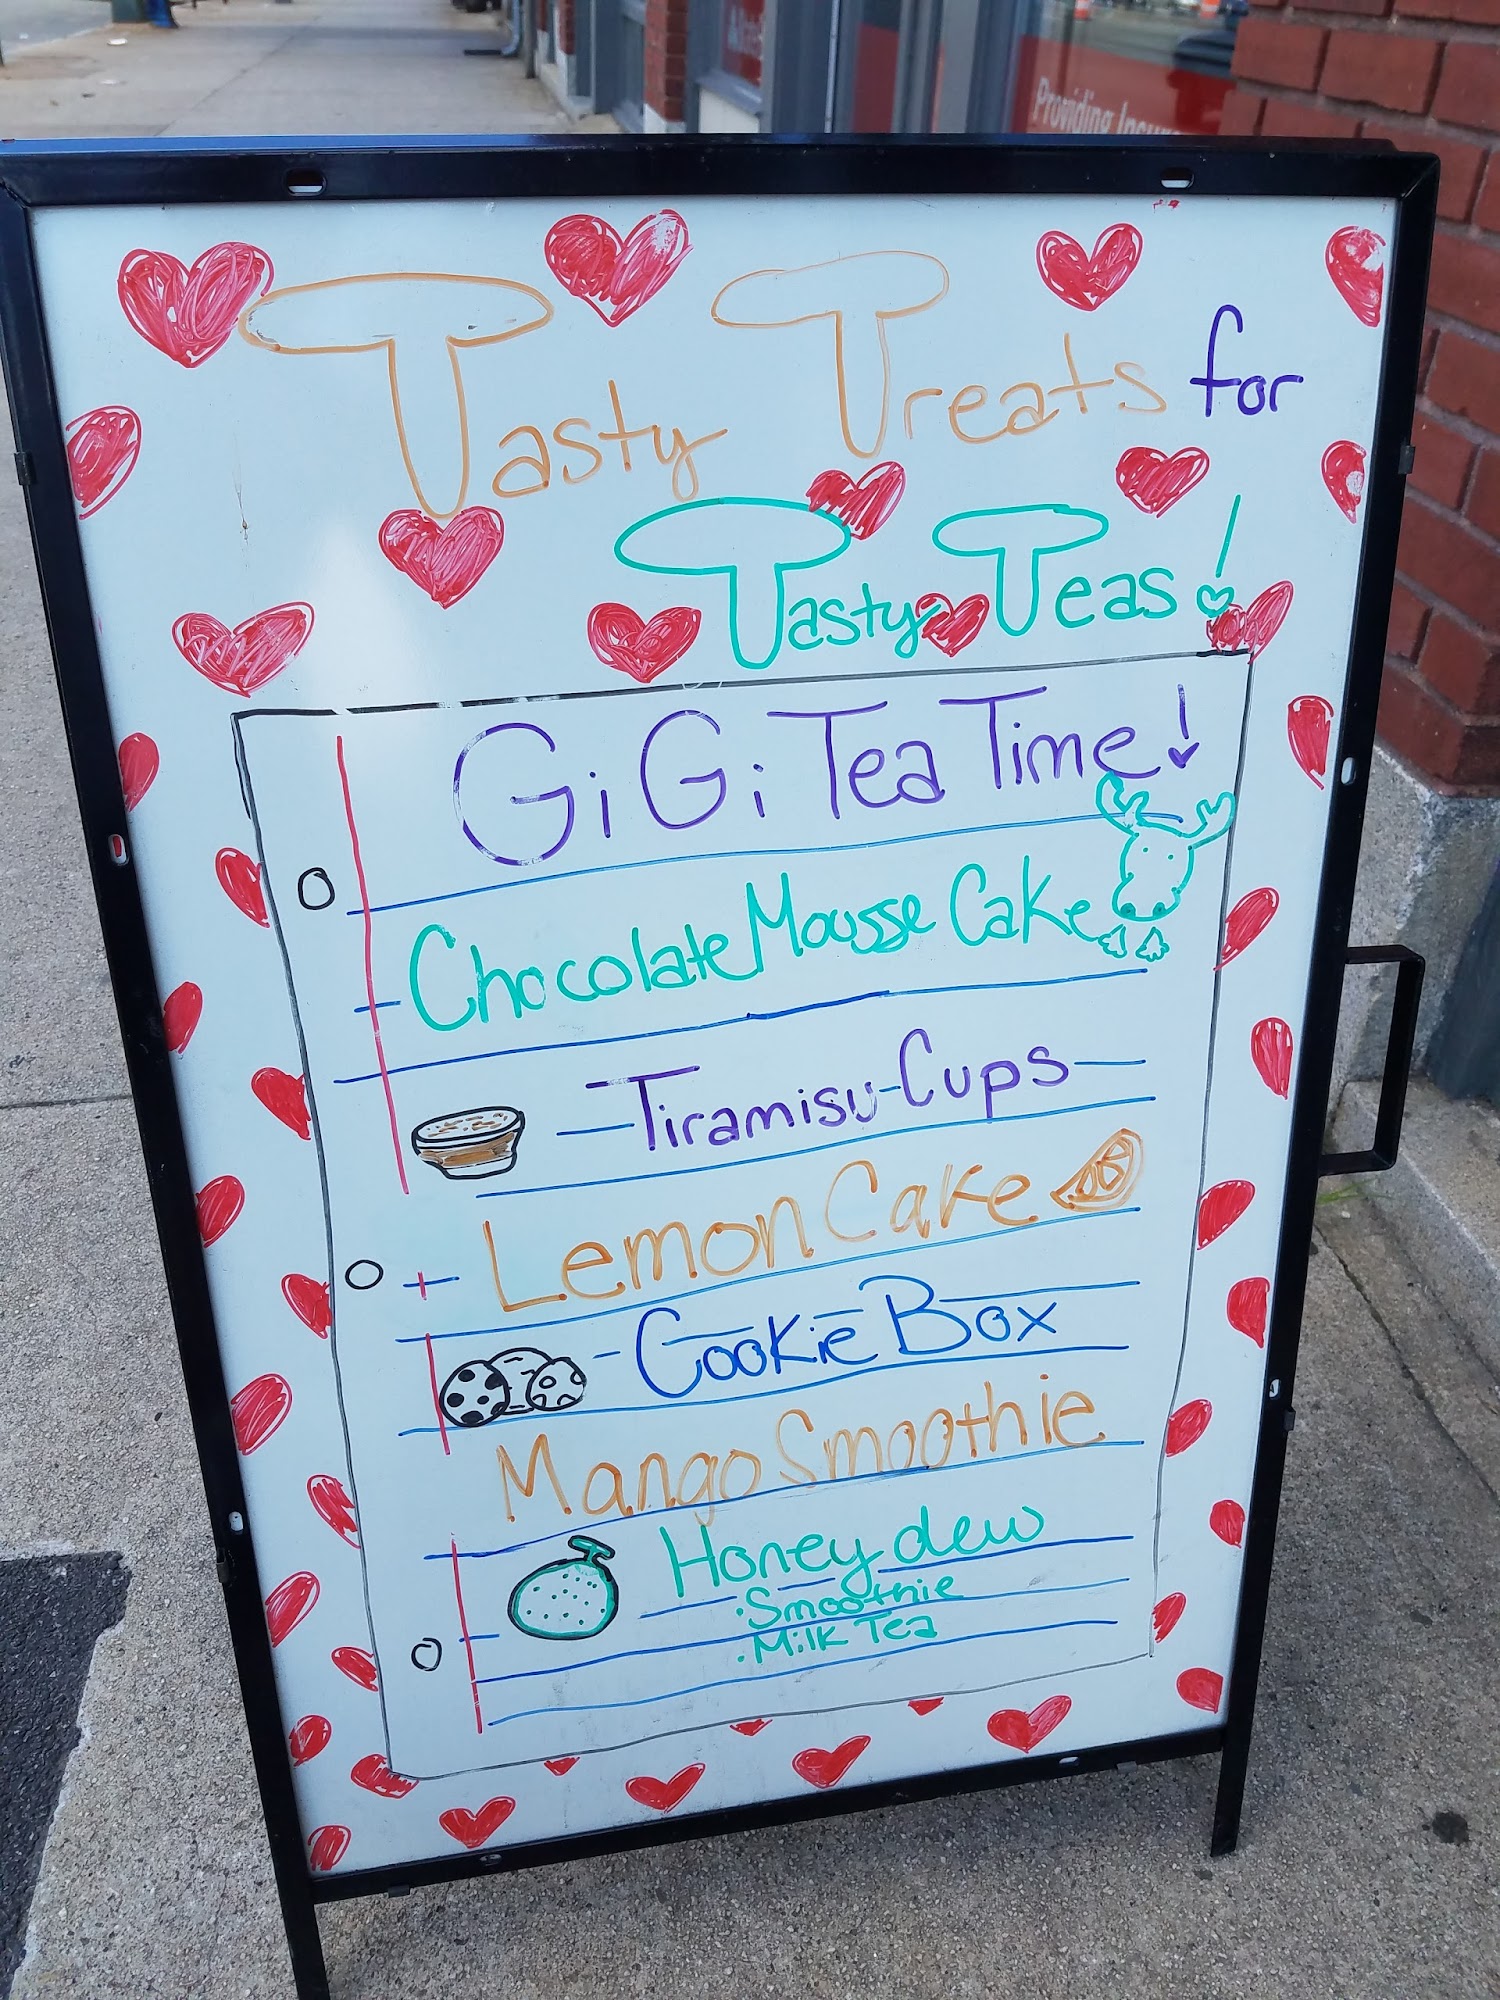 Providing Insur
Tasty Treats for
Tasty Teas!
GiGi Tea Time!
Chocolate Mousse Cake
Tiramisu Cups
Lemon Cake
Cookie Box
Mango Smoothie
Honeydew
· Smoothie
· Milk Tea